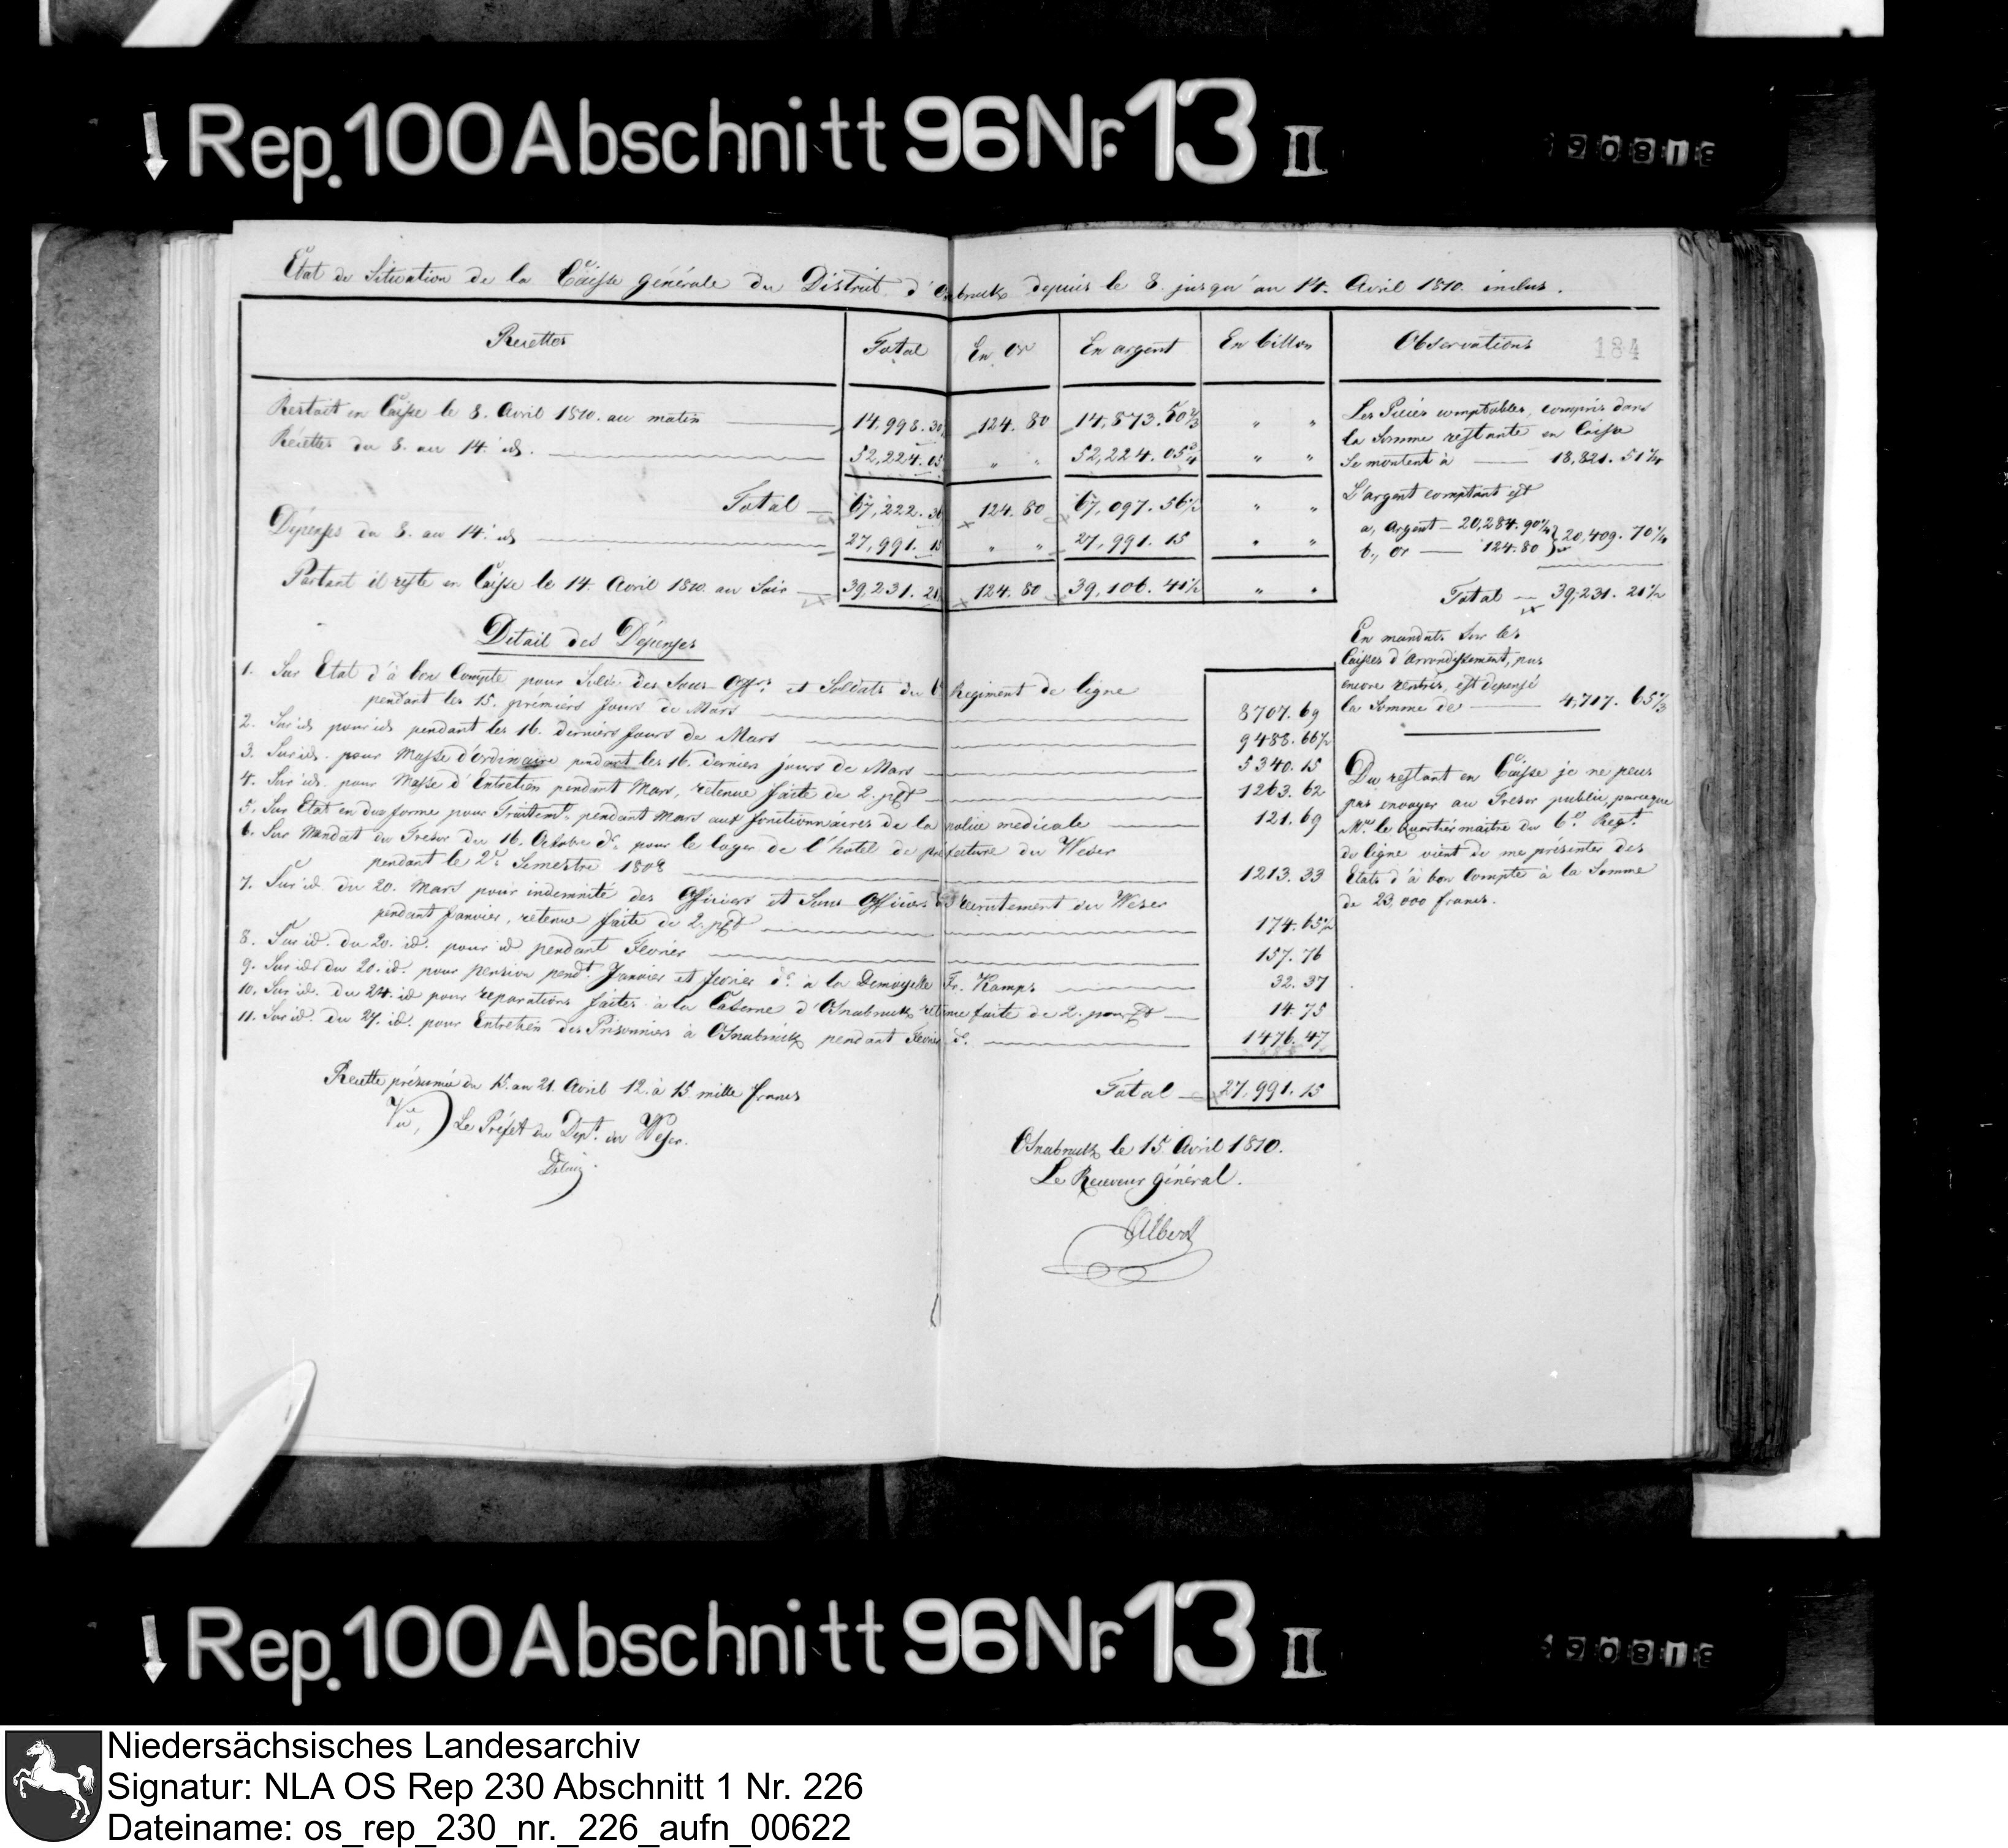 Rep. 100 Abschnitt 96 Nr. 13 II
Etat de Situation de la Caisse générale du District d'Osnabruck depuis le 8. jusqu'au 14. Avril 1810. inclus.
Recettes Total En Or En argent En billon Observations 184
Restait en Caisse le 8. Avril 1810. au matin 14,998. 30 124. 80 14,873. 50 1/2 " "
Récettes du 8. au 14. id. 52,224. 05 " " 52,224. 05 " "
Total 67,222. 36 124. 80 67,097. 56 1/2 " "
Dépenses du 8. au 14. id. 27,991. 15 " " 27,991. 15 " "
Partant il reste en Caisse le 14. Avril 1810. au Soir 39,231. 21 124. 80 39,106. 41 1/2 " "
Les Pièces comptables, compris dans
la Somme restante en Caisse
Se montent à 18,821. 51
L'argent comptant est
a, argent 20,284. 90 } 20,409. 70
b, or 124. 80
Total 39,231. 21
En mandats Sur les
Caisses d'Arrondissement, pas
encore rentrés, est dépensé
la Somme de 4,717. 65
Du restant en Caisse je ne peus
pas envoyer au Tresor public, parceque
Mr. le Quartiermaitre du 6e Regt.
de ligne vient de me présenter des
Etats d'à bon Compte à la Somme
de 23,000 francs.
Détail des Dépenses
1. Sur Etat d'à bon Compte pour Solde des Sous-Offrs. et Soldats du 6e Regiment de ligne
pendant les 15. prémiers Jours de Mars 8707. 69
2. Sur id. pour id. pendant les 16. derniers Jours de Mars 9488. 66 1/2
3. Sur id. pour Masse d'ordinaire pendant les 16. derniers jours de Mars 5340. 15
4. Sur id. pour Masse d'Entretien pendant Mars, retenue faite de 2. pCt 1263. 62
5. Sur Etat en due forme pour Traitemt. pendant Mars aux fonctionnaires de la police medicale 121. 69
6. Sur Mandat du Tresor du 16. Octobre dr. pour le loyer de l'hotel de prefecture du Weser
pendant le 2d. Semestre 1808 1213. 33
7. Sur id. du 20. Mars pour indemnité des Officiers et Sous-Officiers de recrutement du Weser
pendant Janvier, retenue faite de 2. pCt 174. 65 1/2
8. Sur id. du 20. id. pour id pendant Fevrier 157. 76
9. Sur id. du 20. id. pour pension pendt. Janvier et fevrier dr. à la Demoiselle Fr. Kamp. 32. 37
10. Sur id. du 24. id pour reparations faites à la Caserne d'Osnabruck retenue faite de 2. pour Ct 14. 75
11. Sur id. du 27. id. pour Entretien des Prisonniers à Osnabruck pendant Fevrier dr. 1476. 47
Total 27,991. 15
Recette présumée du 15. au 21. Avril 12. à 15 mille francs
Vu, ) Le Préfet du Dept. du Weser.
Osnabruck le 15. Avril 1810.
Le Receveur général.
Albert
Rep. 100 Abschnitt 96 Nr. 13 II
Niedersächsisches Landesarchiv
Signatur: NLA OS Rep 230 Abschnitt 1 Nr. 226
Dateiname: os_rep_230_nr._226_aufn_00622